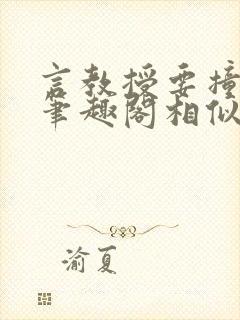 言教授要撞
笔趣阁相似
渝夏